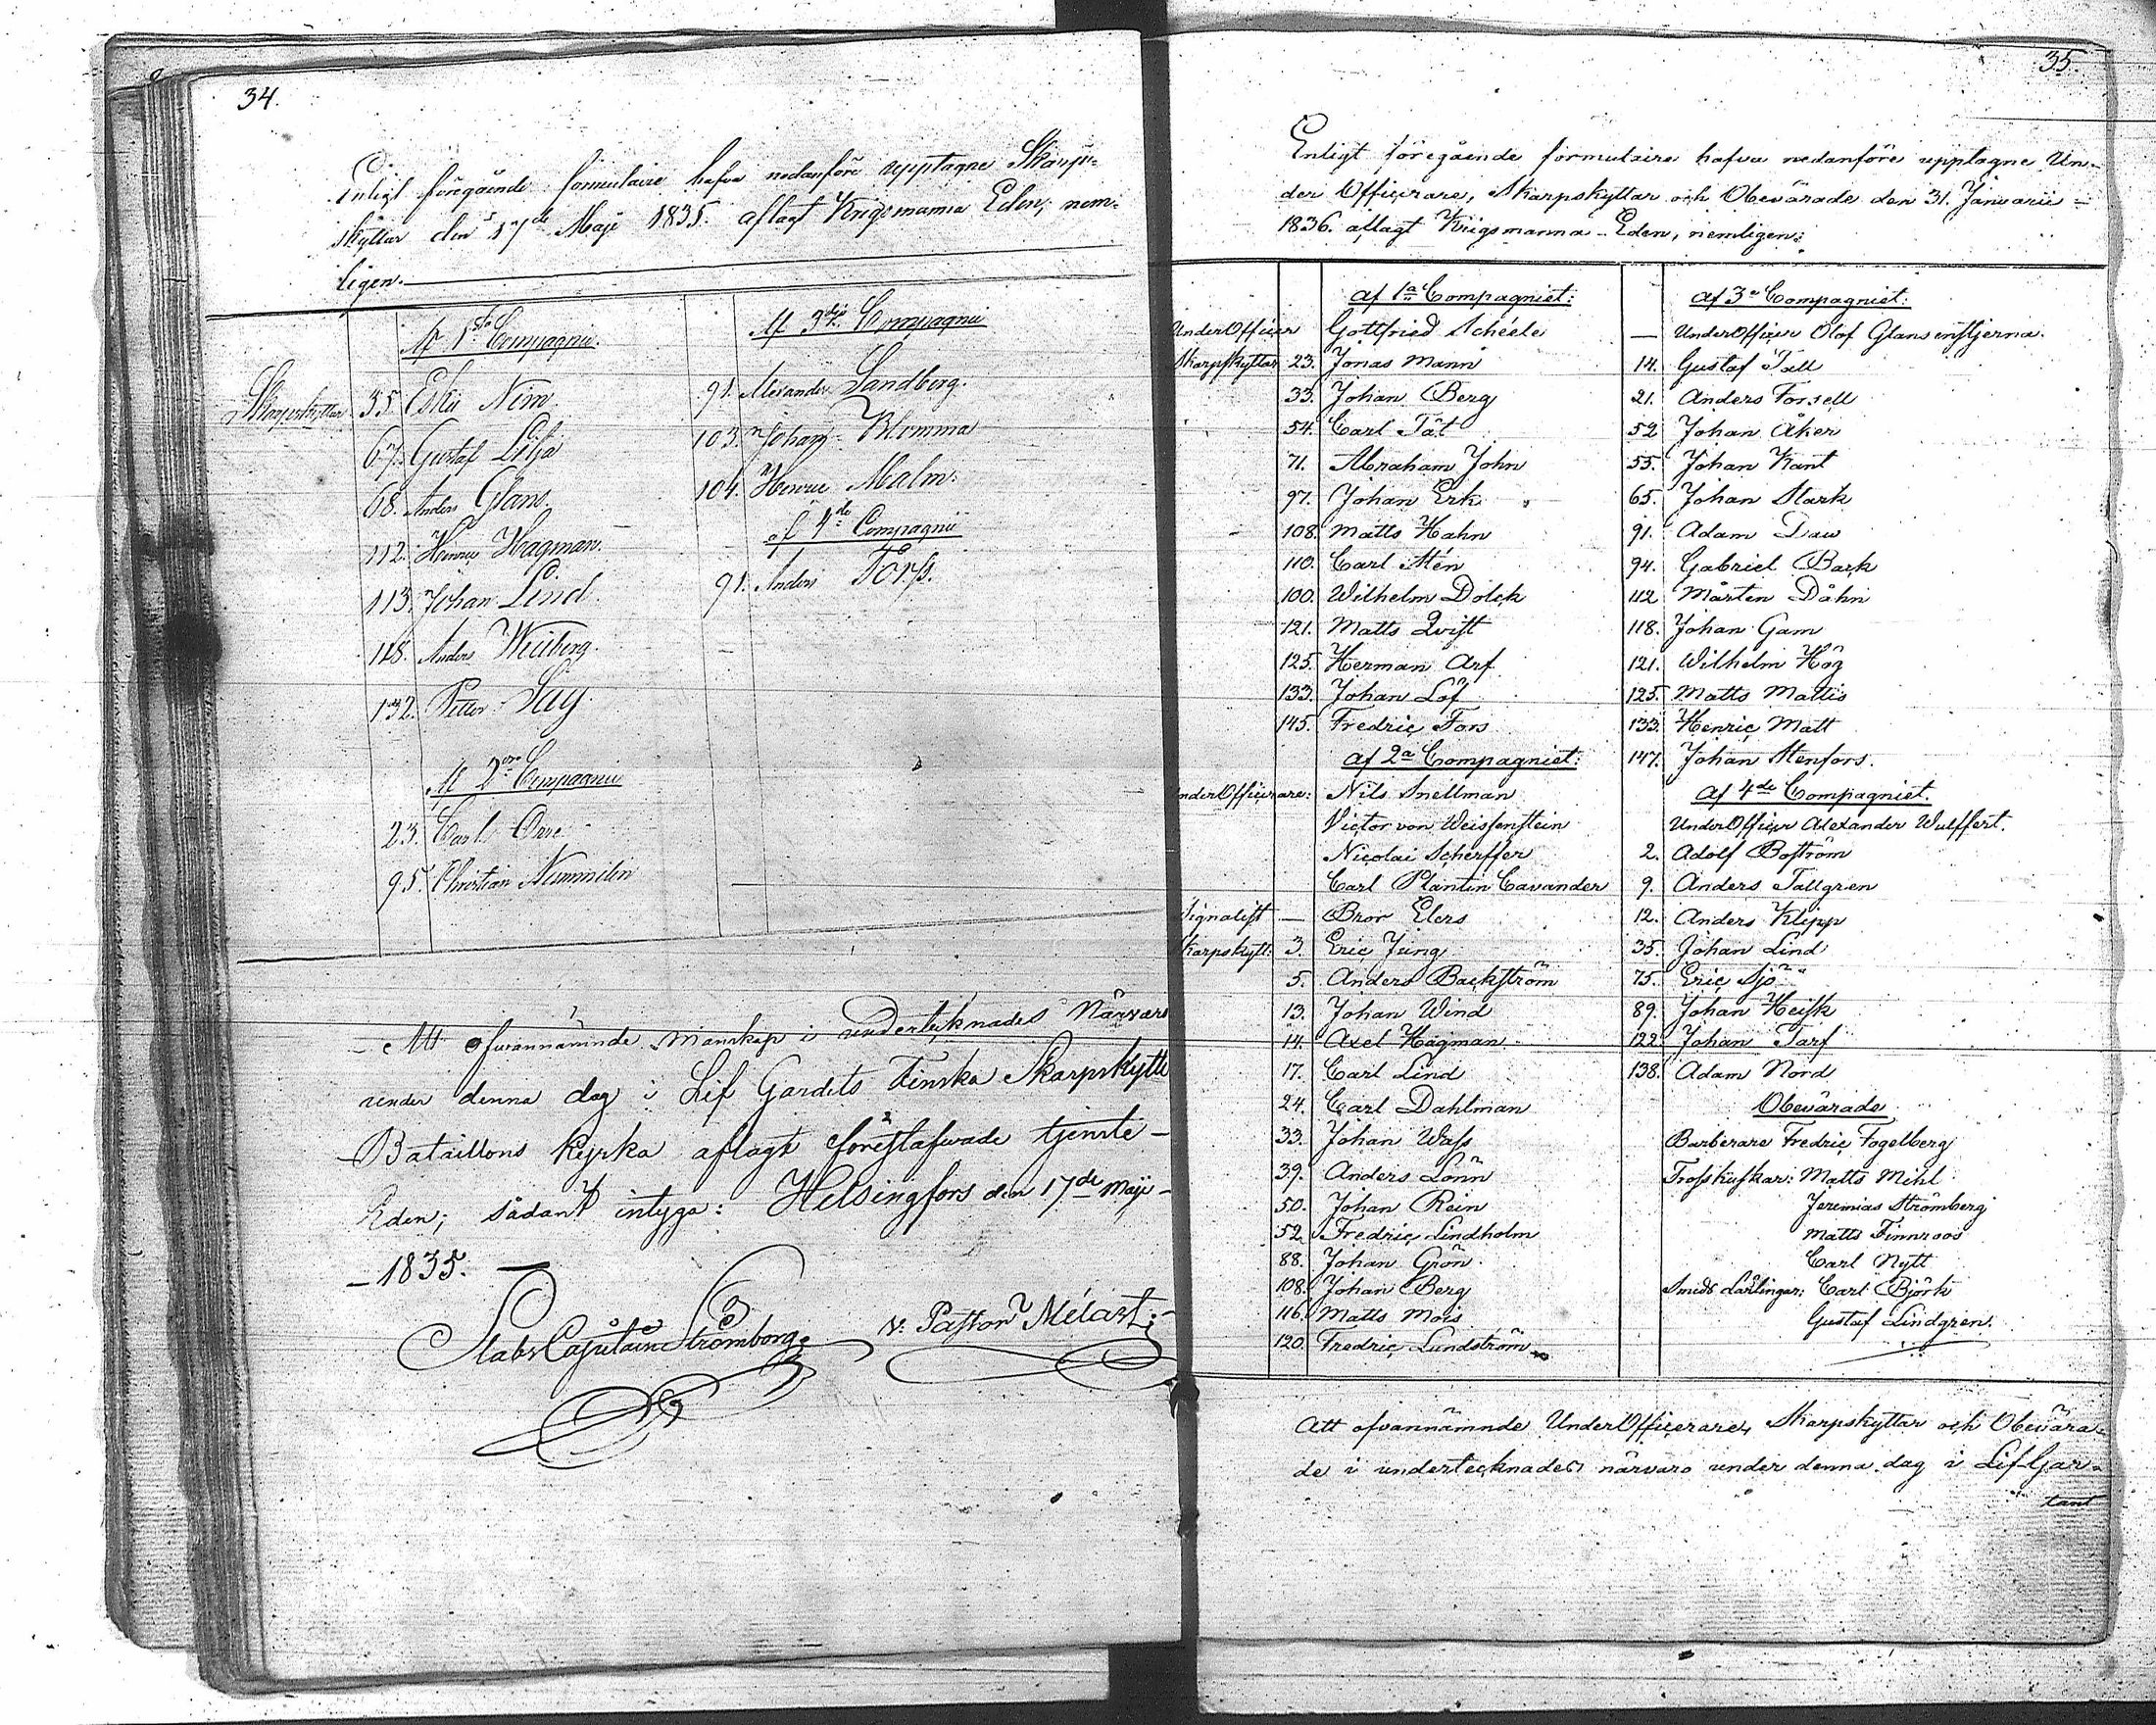 34.
Enligt föregående formulaire hafva nedanföre upptagne Skarp-
skyttar den 17de Maji 1835. aflagt Krigsmanna Eden; nem-
ligen.
Af 1sta Compagnie.
Skarpskyttar 35. Eskil Nim
67. Gustaf Lilja
68. Anders Glans.
112. Henric Hagman.
113. Johan Lind.
118. Anders
132. Petter
Af 2dra Compagnie
23. Carl Orre
95. Christian Nummilin
Af 3dje Compagnie
91. Alexander Sandberg.
103. Johan Blomma
104. Henric Malm.
af 4de Compagnie
91. Anders Törs.
Att ofwannämnde Manskap i undertecknades Närvaro
under denna dag i Lif Gardets Finska Skarpskytte
Bataillons Kyrka aflagt föreftafwade tjenste-
Eden; sådant intyga: Helsingfors den 17de Maji-
1835.
Stabs Capitain Strömborg.
v. Pastor Mélart.
35.
Enligt föregående formulaire hafva nedanföre upptagne Un-
der Officerare, Skarpskyttar och Obevärade den 31. Januarii
1836. aflagt Krigsmanna-Eden, nemligen:
Af 1a Compagniet:
UnderOfficer Gottfried Schéele
Skarpskyttar 23. Jonas Mann
33. Johan Berg
54. Carl Tåt
71. Abraham John
97. Johan Erk
108. Matts Hahn
110. Carl Mén
100. Wilhelm Dolck
121. Matts Qvist
125. Herman Arf
133. Johan Löf
145. Fredric Fors
Af 2a Compagniet:
UnderOfficerare: Nils Snellman
Victor von Weissenstein
Nicolai Scherffer
Carl Plantin Cavander
Signalist — Bror Elers
Skarpskytt: 3. Eric Jung
5. Anders Backström
13. Johan Wind
14. Axel Hagman
17. Carl Lind
24. Carl Dahlman
33. Johan Wass
39. Anders Lönn
50. Johan Rein
52. Fredric Lindholm
88. Johan Grön
108. Johan Berg
116. Matts Mois
120. Fredric Lundström
Af 3e Compagniet:
— UnderOfficer Olof Glansenstjerna.
14. Gustaf Tall
21. Anders Forsell
52 Johan Åker
55. Johan Kant
65. Johan Stark
91. Adam Daw
94. Gabriel Back
112 Mårten Dåhn
118. Johan Gam
121. Wilhelm Hög
125. Matts Mattis
133. Henric Matt
147. Johan Stenfors.
Af 4de Compagniet.
UnderOfficer Alexander Wulffert.
2. Adolf Boström
9. Anders Tallgren
12. Anders Klipp
35. Johan Lind
75. Eric Sjö
89. Johan Heisk
122. Johan Tarf
138. Adam Nord
Obevärade
Barberare Fredric Fogelberg
Trosskuskar: Matts Mihl
Jeremias Strömberg
Matts Finnroos
Carl Nytt
Smeds Lärlingar: Carl Björk
Gustaf Lindgren.
Att ofvannämnde UnderOfficerare, Skarpskyttar och Obevära-
de i undertecknades närvaro under denna dag i Lif-Gar-